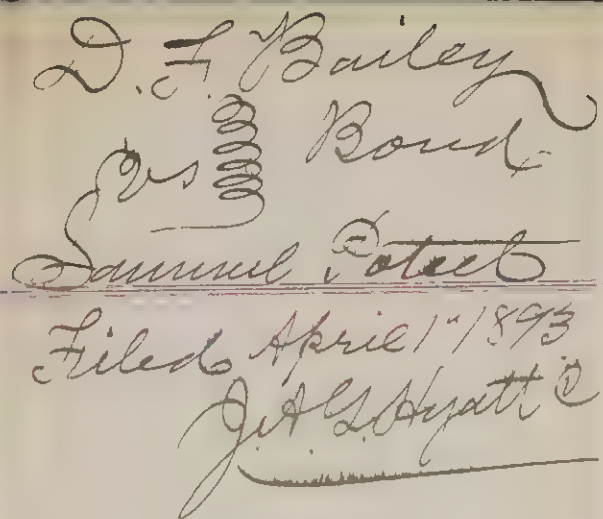 D. F. Bailey
vs Bond
Samuel Poteet
Filed April 1" 1893
J. A. G. Hyatt C